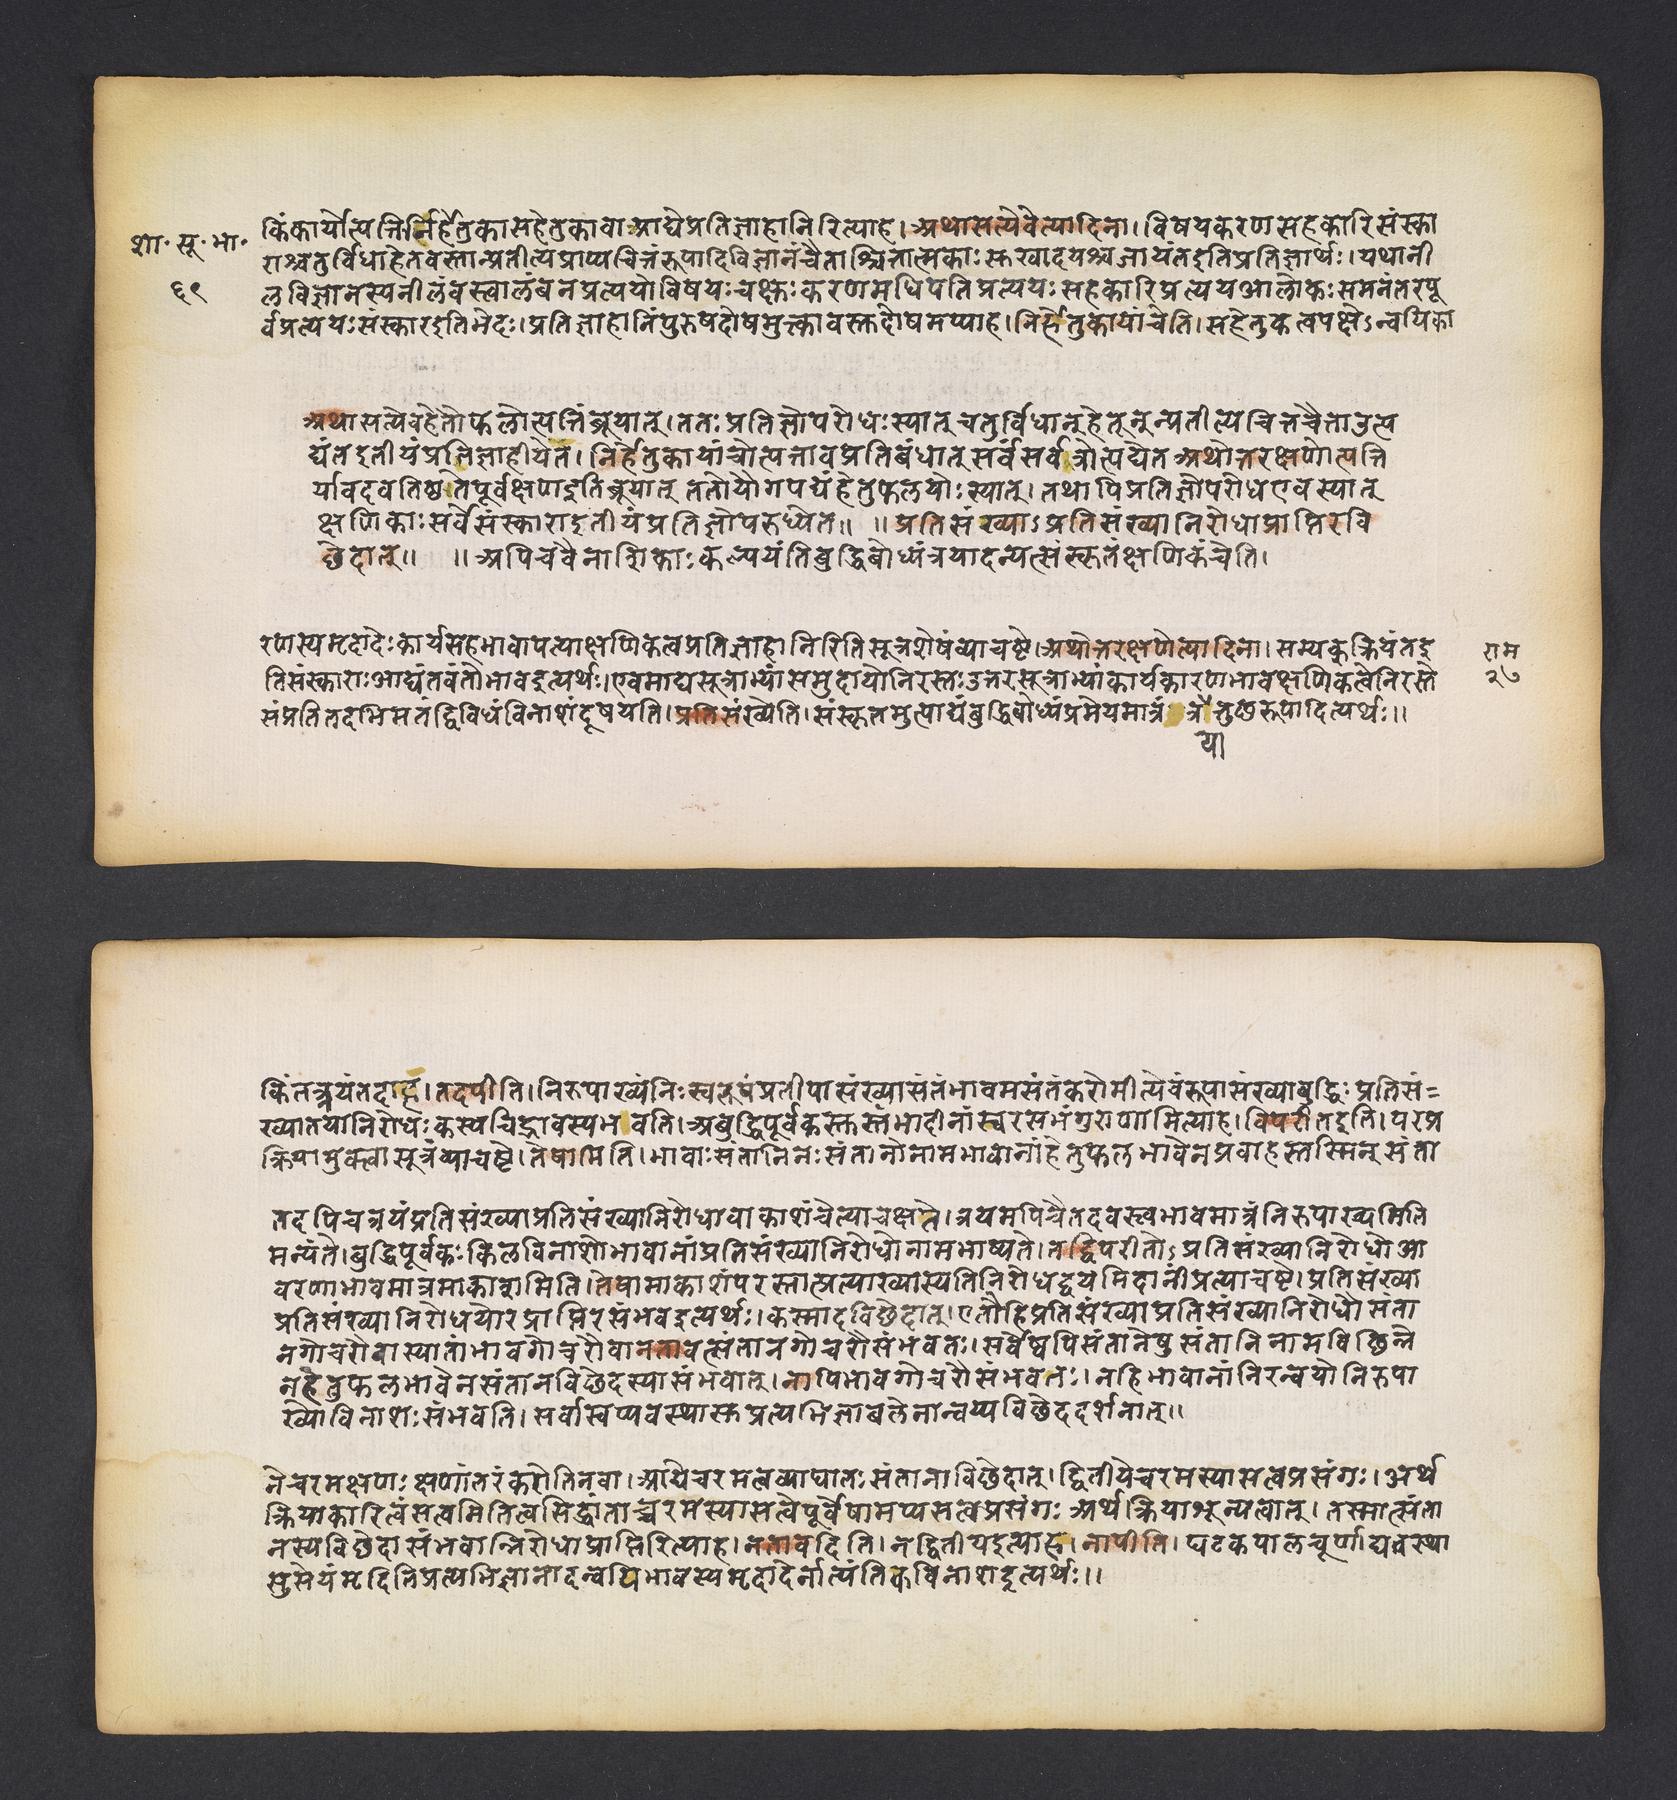 किंकार्योत्पत्तिर्निर्हेतुकासहेतुकावा आद्येप्रतिज्ञाहानिरित्याह। अथासत्येवेत्यादिना। विषयकरणसहकारिसंस्का
शा॰ सू॰ भा॰
राश्चतुर्विधाहेतवस्तान्प्रतीत्यप्राप्यचित्तंरूपादिविज्ञानंचैताश्चित्तात्मकाः सुखादयश्चजायंतइतिप्रतिज्ञार्थः। यथानी
६९
लविज्ञानस्यनीलंवस्त्वालंबनप्रत्ययोविषयः चक्षुः करणमधिपतिप्रत्ययः सहकारिप्रत्ययआलोकः समनंतरपू
र्वप्रत्ययः संस्कारइतिभेदः। प्रतिज्ञाहानिंपुरुषदोषमुक्त्कावस्तुदोषमप्याह। निर्हेतुकायांचेति। सहेतुकत्वपक्षेऽन्वयिका
अथासत्येवहेतौफलोत्पत्तिंब्रूयात्। ततः प्रतिज्ञोपरोधः स्यात् चतुर्विधान्हेतून्प्रतीत्यचित्तचैत्ताउत्प
द्यंतइतीयंप्रतिज्ञाहीयेत। निर्हेतुकायांचोत्पत्तावप्रतिबंधात् सर्वंसर्वत्रोत्पद्येत अथोत्तरक्षणोत्पत्ति
र्यावदवतिष्ठतेपूर्वक्षणइतिब्रूयात् ततोयौगपद्यंहेतुफलयोः स्यात्। तथापिप्रतिज्ञोपरोधएवस्यात्
क्षणिकाः सर्वेसंस्काराइतीयंप्रतिज्ञोपरुध्येत॥ ॥ प्रतिसंख्याऽप्रतिसंख्यानिरोधाप्राप्तिरवि
छेदात्॥ ॥ अपिचवैनाशिकाः कल्पयंतिबुद्धिबोध्यंत्रयादन्यत्संस्कृतंक्षणिकंचेति।
रणस्यमृदादेः कार्यसहभावापत्याक्षणिकत्वप्रतिज्ञाहानिरितिसूत्रशेषंव्याचष्टे। अथोत्तरक्षणेत्यादिना। सम्यक्क्रियंतइ
राम
तिसंस्काराः आद्यंतवंतोभावाइत्यर्थः। एवमाद्यसूत्राभ्यांसमुदायोनिरस्तः उत्तरसूत्राभ्यांकार्यकारणभावक्षणिकत्वेनिरस्ते
२७
संप्रतितदभिमतद्विविधंविनाशंदूषयति। प्रतिसंख्येति। संस्कृतमुत्पाद्यंबुद्धिबोध्यंप्रमेयमात्रं त्रयंतुच्छरूपादित्यर्थः॥
या
किंतत्त्रयंतदाह। तदपीति। निरुपाख्यंनिः स्वरूपंप्रतीपासंख्यासंतंभावमसंतंकरोमीत्येवंरूपासंख्याबुद्धिः प्रतिसं=
ख्यातयानिरोधः कस्यचिद्भावस्यभवति। अबुद्धिपूर्वकस्तुस्तंभादीनांस्वरसभंगुराणामित्याह। विपरीतइति। परप्र
क्रियामुक्त्वासूत्रंव्याचष्टे। तेषामिति। भावाः संतानिनः संतानोनामभावानांहेतुफलभावेनप्रवाहस्तस्मिन् संता
तदपिचत्रयंप्रतिसंख्याप्रतिसंख्यानिरोधावाकाशंचेत्याचक्षते। त्रयमपिचैतदवस्त्वभावमात्रंनिरुपाख्यमिति
मन्यंते। बुद्धिपूर्वकः किलविनाशोभावानांप्रतिसंख्यानिरोधोनामभाष्यते। तद्विपरीतोऽप्रतिसंख्यानिरोधो आ
वरणाभावमात्रमाकाशमिति। तेषामाकाशंपरस्तात्प्रत्याख्यास्यतिनिरोधद्वयमिदानींप्रत्याचष्टे। प्रतिसंख्या
प्रतिसंख्यानिरोधयोरप्राप्तिरसंभवइत्यर्थः। कस्मादविछेदात्। एतौहिप्रतिसंख्याप्रतिसंख्यानिरोधौसंता
नगोचरौवास्यातांभावगोचरौवानतावत्संतानगोचरौसंभवतः। सर्वेष्वपिसंतानेषुसंतानिनामविछिन्ने
नहेतुफलभावेनसंतानविछेदस्यासंभवात्। नापिभावगोचरौसंभवतः। नहिभावानांनिरन्वयोनिरुपा
ख्योविनाशः संभवति। सर्वास्वप्यवस्थासुप्रत्यभिज्ञाबलेनान्वय्यविछेददर्शनात्॥
नेचरमक्षणः क्षणांतरंकरोतिनवा। आद्येचरमत्वव्याघातः संतानाविछेदात्। द्वितीयेचरमस्यासत्वप्रसंगः। अर्थ
क्रियाकारित्वंसत्वमितित्वसिद्धांताच्चरमस्यासत्वेपूर्वेषामप्यसत्वप्रसंगः अर्थक्रियाशून्यत्वात्। तस्मात्संता
नस्यविछेदासंभवान्निरोधाप्राप्तिरित्याह। नतावदिति। नद्वितीयइत्याह। नापीति। घटकपालचूर्णाद्यवस्था
सुसेयंमृदितिप्रत्यभिज्ञानादन्वयिभावस्यमृदादेर्नात्यंतिकविनाशइत्यर्थः॥